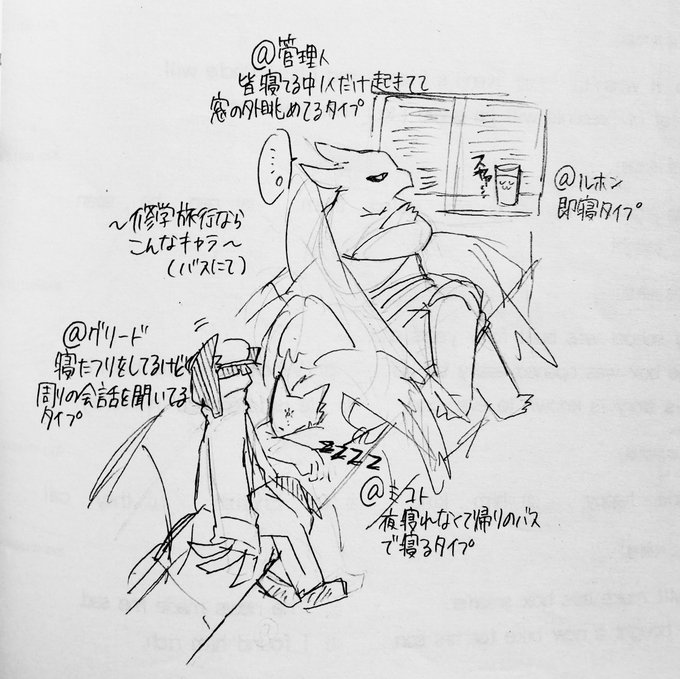 @管理人
皆寝てる中1人だけ起きてて
窓の外眺めてるタイプ
……。
スヤァ…
@ルホン
即寝タイプ
～修学旅行なら
こんなキャラ～
(バスにて)
@グリード
寝たフリをしてるけど
周りの会話を聞いてる
タイプ
ZZZZ
@ミコト
夜寝れなくて帰りのバス
で寝るタイプ